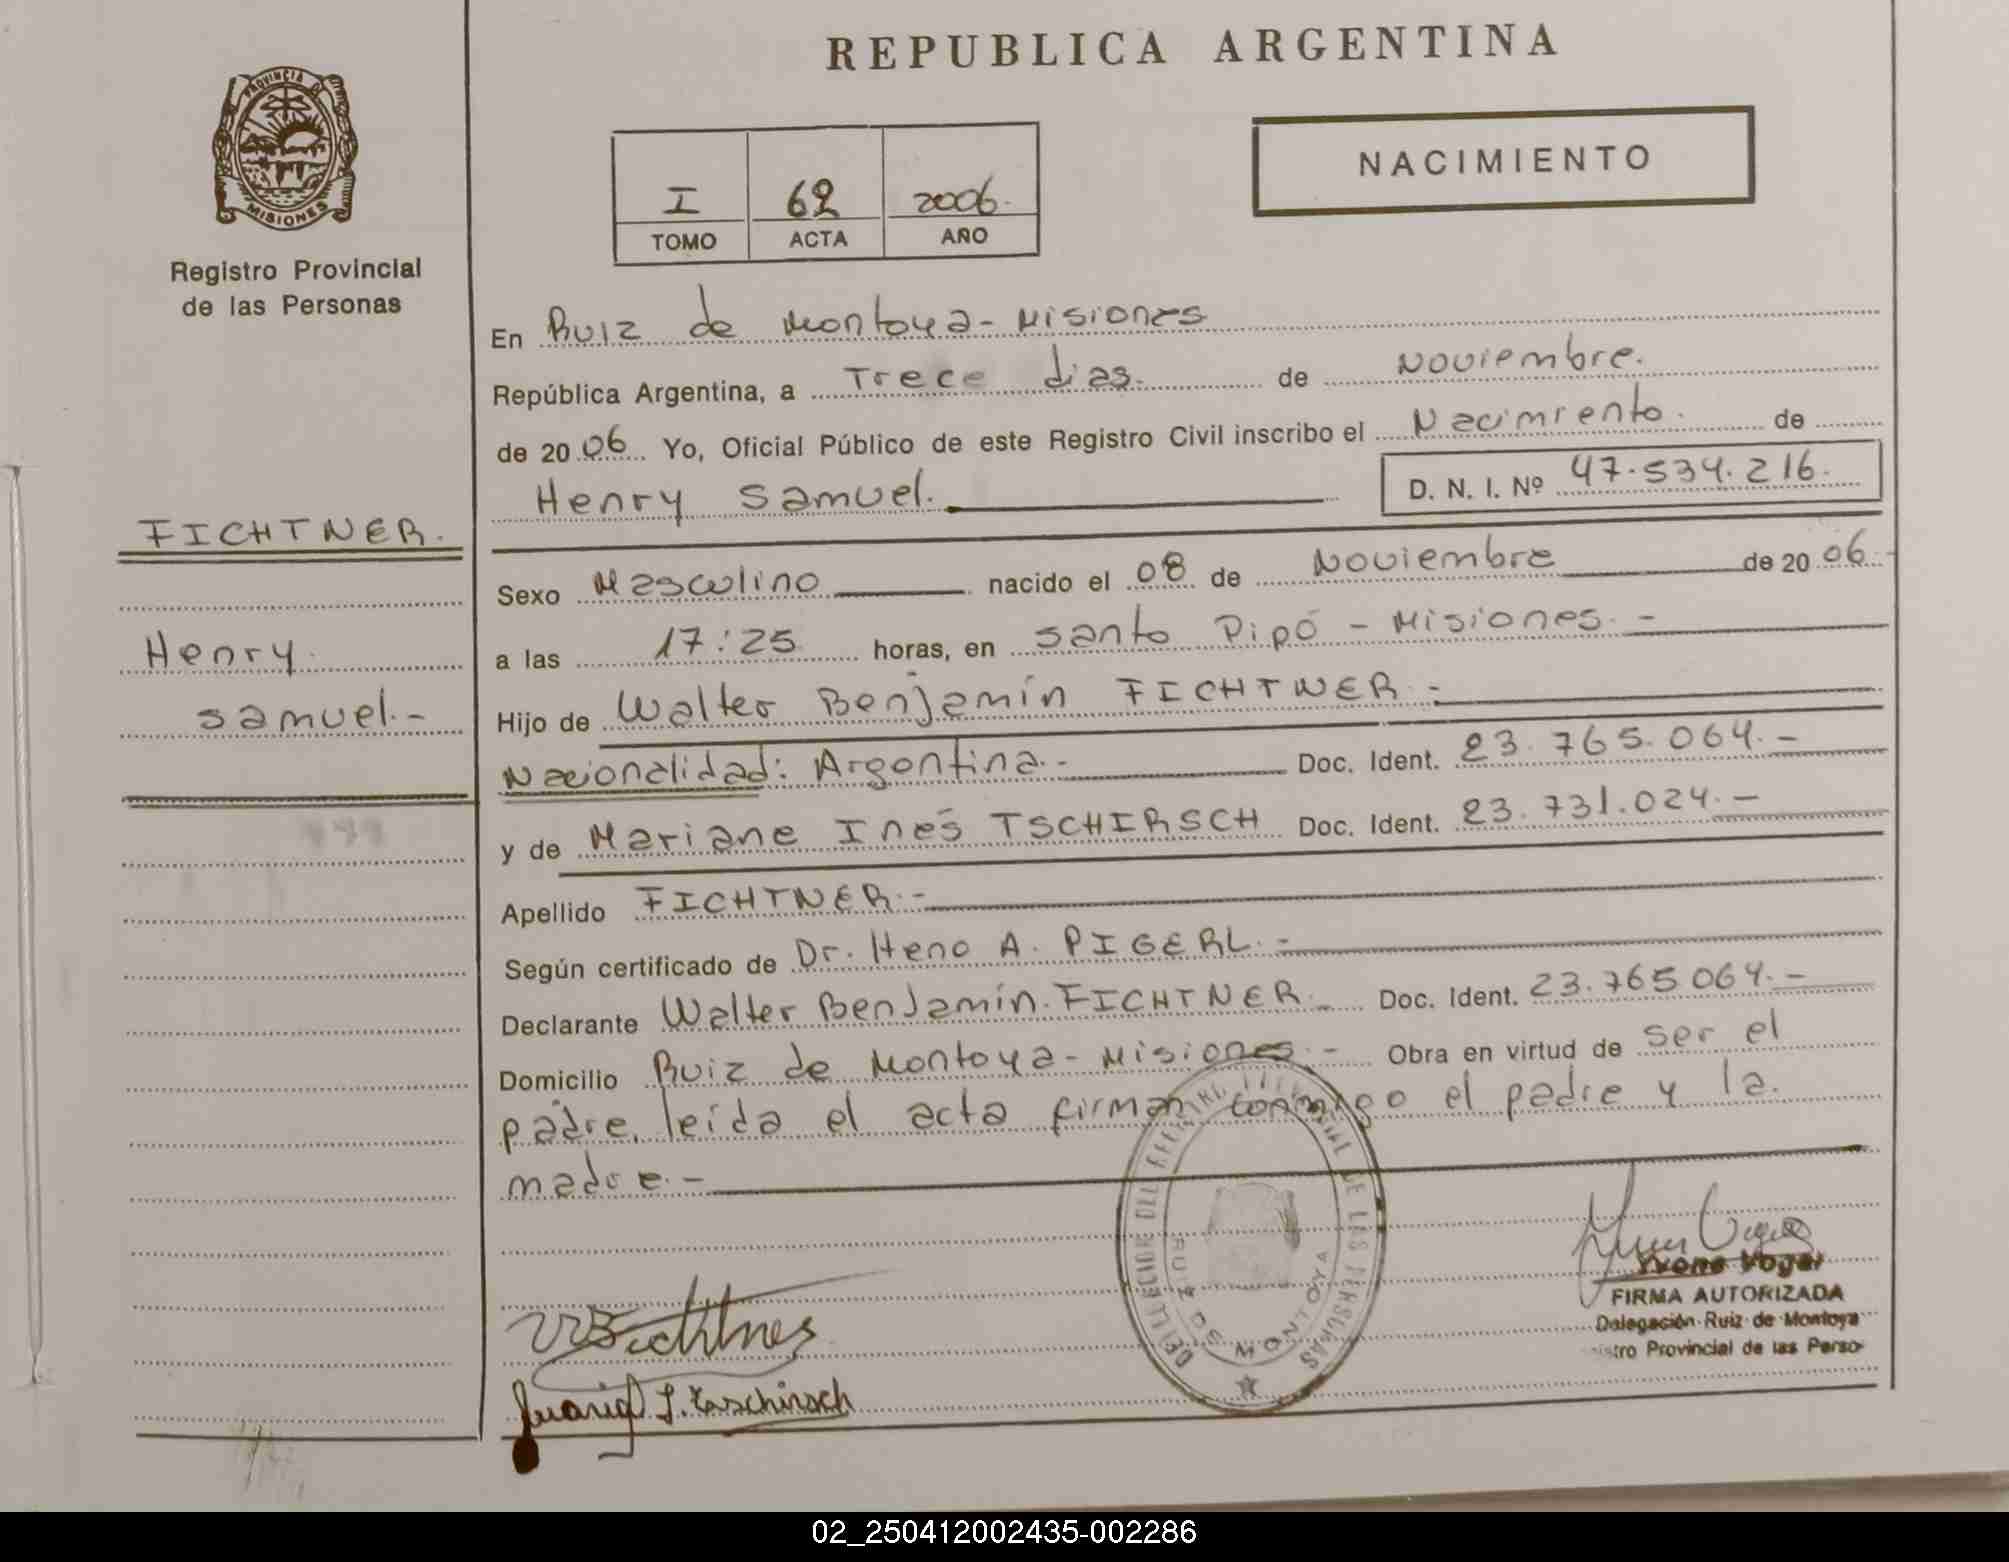 REPUBLICA ARGENTINA
PROVINCIA D
MISIONES
Registro Provincial
de las Personas
NACIMIENTO
I 62 2006.
TOMO ACTA AÑO
En Ruiz de Montoya - Misiones
República Argentina, a Trece dias. de Noviembre.
de 2006. Yo, Oficial Público de este Registro Civil inscribo el Nacimiento. de
Henry Samuel. D. N. I. Nº 47.534.216.
FICHTNER.
Henry
Samuel.-
Sexo Masculino nacido el 08 de Noviembre de 2006.-
a las 17:25 horas, en Santo Pipó - Misiones. -
Hijo de Walter Benjamín FICHTNER.-
Nacionalidad: Argentina.- Doc. Ident. 23.765.064.-
y de Mariane Inés TSCHIRSCH Doc. Ident. 23.731.024.-
Apellido FICHTNER.-
Según certificado de Dr. Heno A. PIGERL.-
Declarante Walter Benjamín FICHTNER.- Doc. Ident. 23.765.064.-
Domicilio Ruiz de Montoya - Misiones.- Obra en virtud de ser el
padre, leída el acta firman conmigo el padre y la
madre.-
DELEGACION DEL REGISTRO PROVINCIAL DE LAS PERSONAS
RUIZ DE MONTOYA
Yvone Vogel
FIRMA AUTORIZADA
Delegación Ruiz de Montoya
istro Provincial de las Perso
WBFichtner
I. Tschirsch
02_250412002435-002286